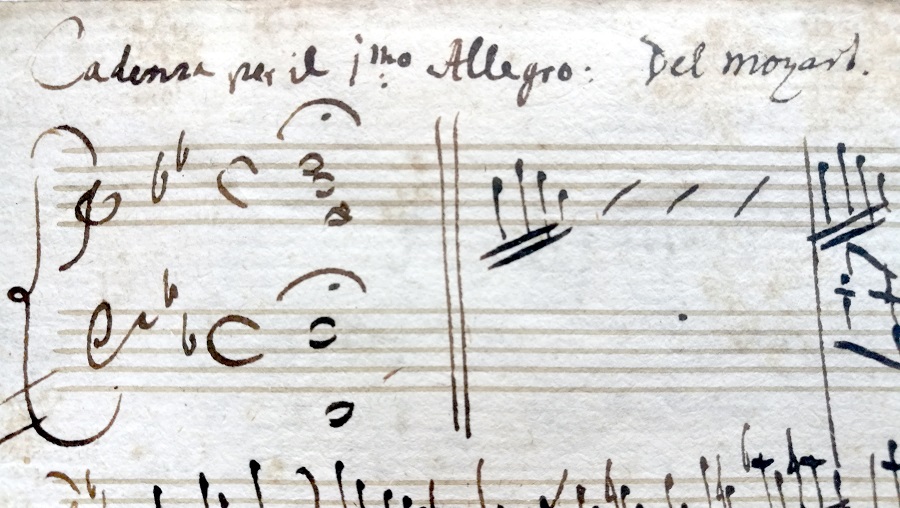 Cadenza per il 1mo Allegro: Del Mozart.